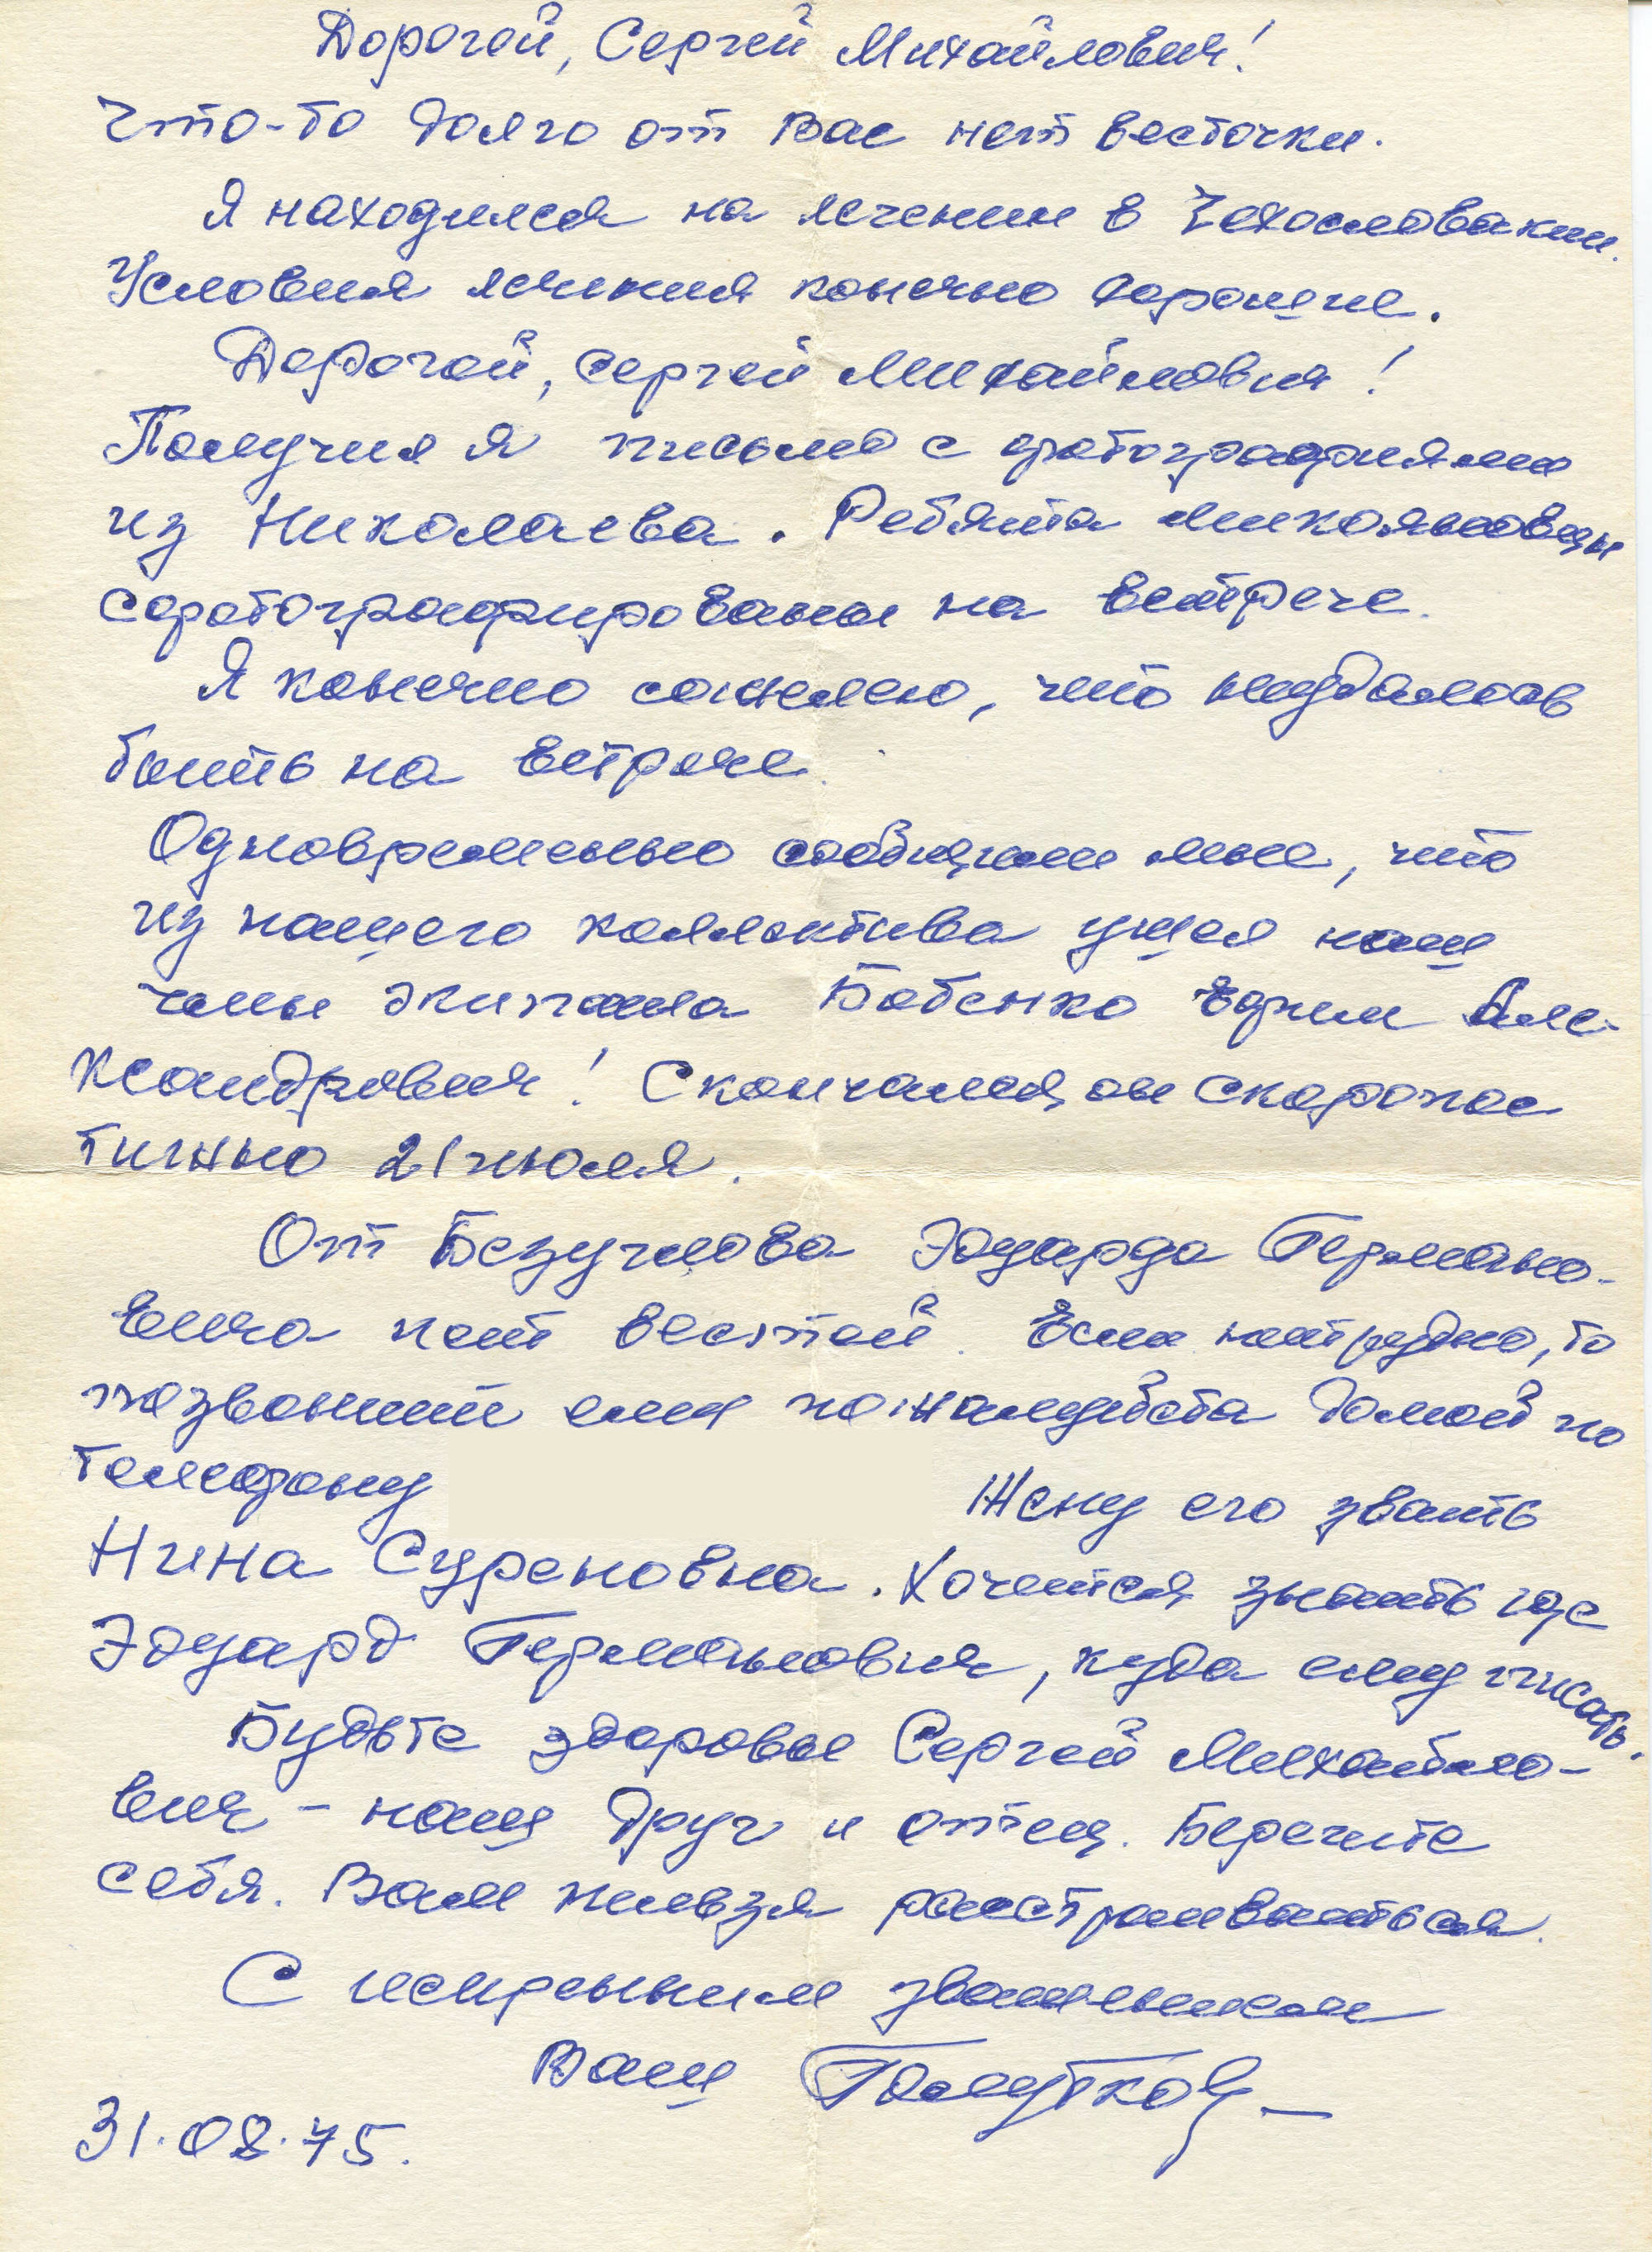 Дорогой, Сергей Михайлович!
Что-то долго от Вас нет весточки.
Я находился на лечении в Чехословакии.
Условия лечения конечно хорошие.
Дорогой, Сергей Михайлович!
Получил я письмо с фотографиями
из Николаева. Ребята микояновцы
сфотографированы на встрече.
Я конечно сожалею, что неудалось
быть на встрече.
Одновременно сообщили мне, что
из нашего коллектива ушел наш
член экипажа Бабенко Ефим Але-
ксандрович! Скончался он скоропос
тижно 21 июля.
От Безумнова Эдуарда Германо-
вича нет вестей. Если нетрудно, то
позвоните ему пожалуйста домой по
телефону
Жену его звать
Нина Суреновна. Хочется знать где
Эдуард Германович, куда ему писать.
Будьте здоровы Сергей Михайло-
вич - наш друг и отец. Берегите
себя. Вам нельзя расстраиваться.
С искренним уважением
Ваш
31.08.75.